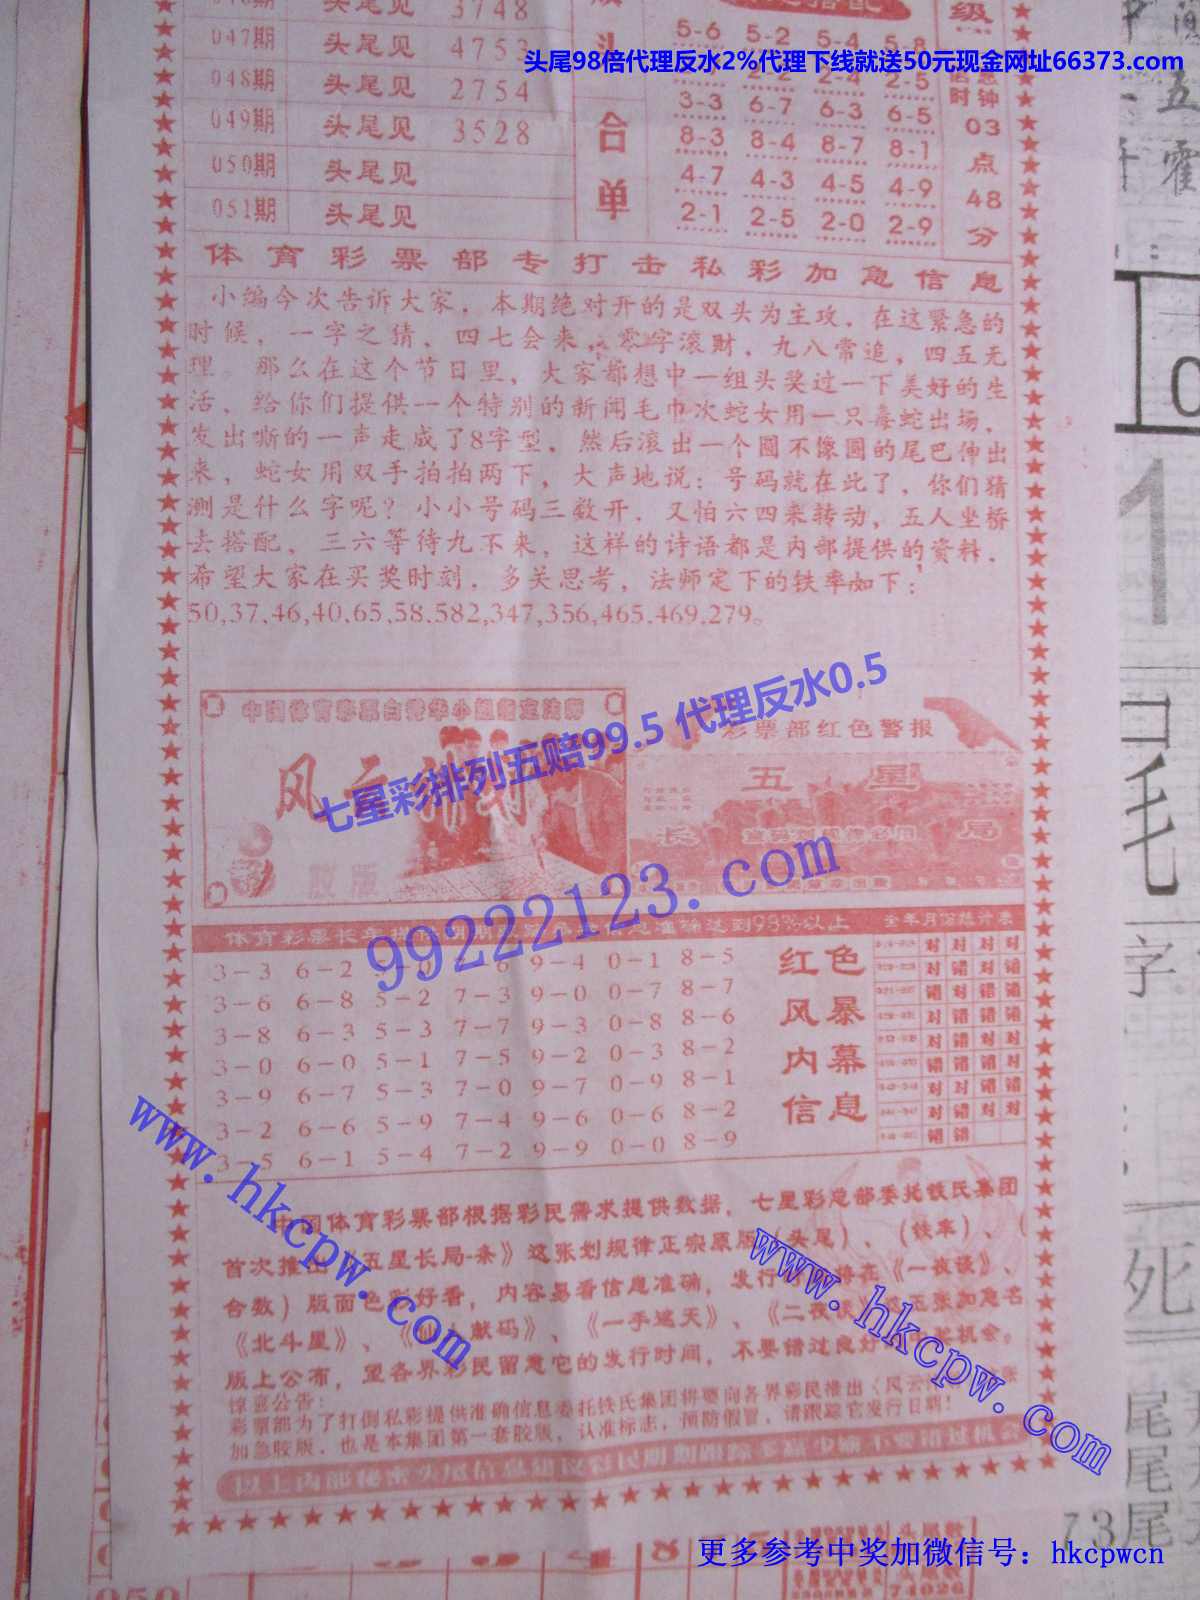 头尾见 3748
级
5-6 5-2 5-4 5-8
头尾98倍代理反水2%代理下线就送50元现金网址66373.com
047期 头尾见 4753
048期 头尾见 2754
时钟
3-3 6-7 6-3 6-5
03
049期 头尾见 3528
合
8-3 8-4 8-7 8-1
点
050期 头尾见
4-7 4-3 4-5 4-9
48
单
051期 头尾见
2-1 2-5 2-0 2-9
分
体育彩票部专打击私彩加急信息
小编今次告诉大家，本期绝对开的是双头为主攻，在这紧急的
时候，一字之猜，四七会来，零字滚财，九八常追，四五无
理 那么在这个节日里，大家都想中一组头奖过一下美好的生
活，给你们提供一个特别的新闻毛巾次蛇女用一只毒蛇出场，
发出嘶的一声走成了8字型，然后滚出一个圆不像圆的尾巴伸出
来，蛇女用双手拍拍两下，大声地说：号码就在此了，你们猜
测是什么字呢？小小号码三数开，又怕六四来转动，五人坐桥
去搭配，三六等待九不来，这样的诗语都是内部提供的资料，
希望大家在买奖时刻，多关思考，法师定下的铁率如下：
50,37,46,40,65,58.582,347,356,465.469,279。
七星彩排列五赔99.5 代理反水0.5
彩票部红色警报
风云
五星
长局
胶版
99222123.com
3-3 6-2 9-4 0-1 8-5
3-6 6-8 5-2 7-3 9-0 0-7 8-7
3-8 6-3 5-3 7-7 9-3 0-8 8-6
3-0 6-0 5-1 7-5 9-2 0-3 8-2
3-9 6-7 5-3 7-0 9-7 0-9 8-1
3-2 6-6 5-9 7-4 9-6 0-6 8-2
3-5 6-1 5-4 7-2 9-9 0-0 8-9
红色
风暴
内幕
信息
全年月份总计票
对 对 对 对
对 错 对 错
错 对 错 错
对 错 错 错
对 错 错 对
错 错 错 错
对 对 错 错
对 错 对 对
错 错
www.hkcpw.com
中国体育彩票部根据彩民需求提供数据，七星彩总部委托铁氏集团
首次推出《五星长局-条》这张划规律正宗原版（头尾）、（铁率）、（
合数）版面色彩好看，内容易看信息准确，发行 在《一夜谈》、
《北斗星》、《仙人献码》、《一手遮天》、《二夜谈》 五张加急名
版上公布，望各界彩民留意它的发行时间，不要错过良好 机会。
惊喜公告：
彩票部为了打倒私彩提供准确信息委托铁氏集团将要向各界彩民推出《风云
加急胶版，也是本集团第一套胶版，认准标志，预防假冒，请跟踪它发行日期！
以上内部秘密头尾信息建议彩民期期跟踪多赢少输不要错过机会
www.hkcpw.com
更多参考中奖加微信号：hkcpwcn
毛
字
死
尾
尾
73尾
头尾数
74026